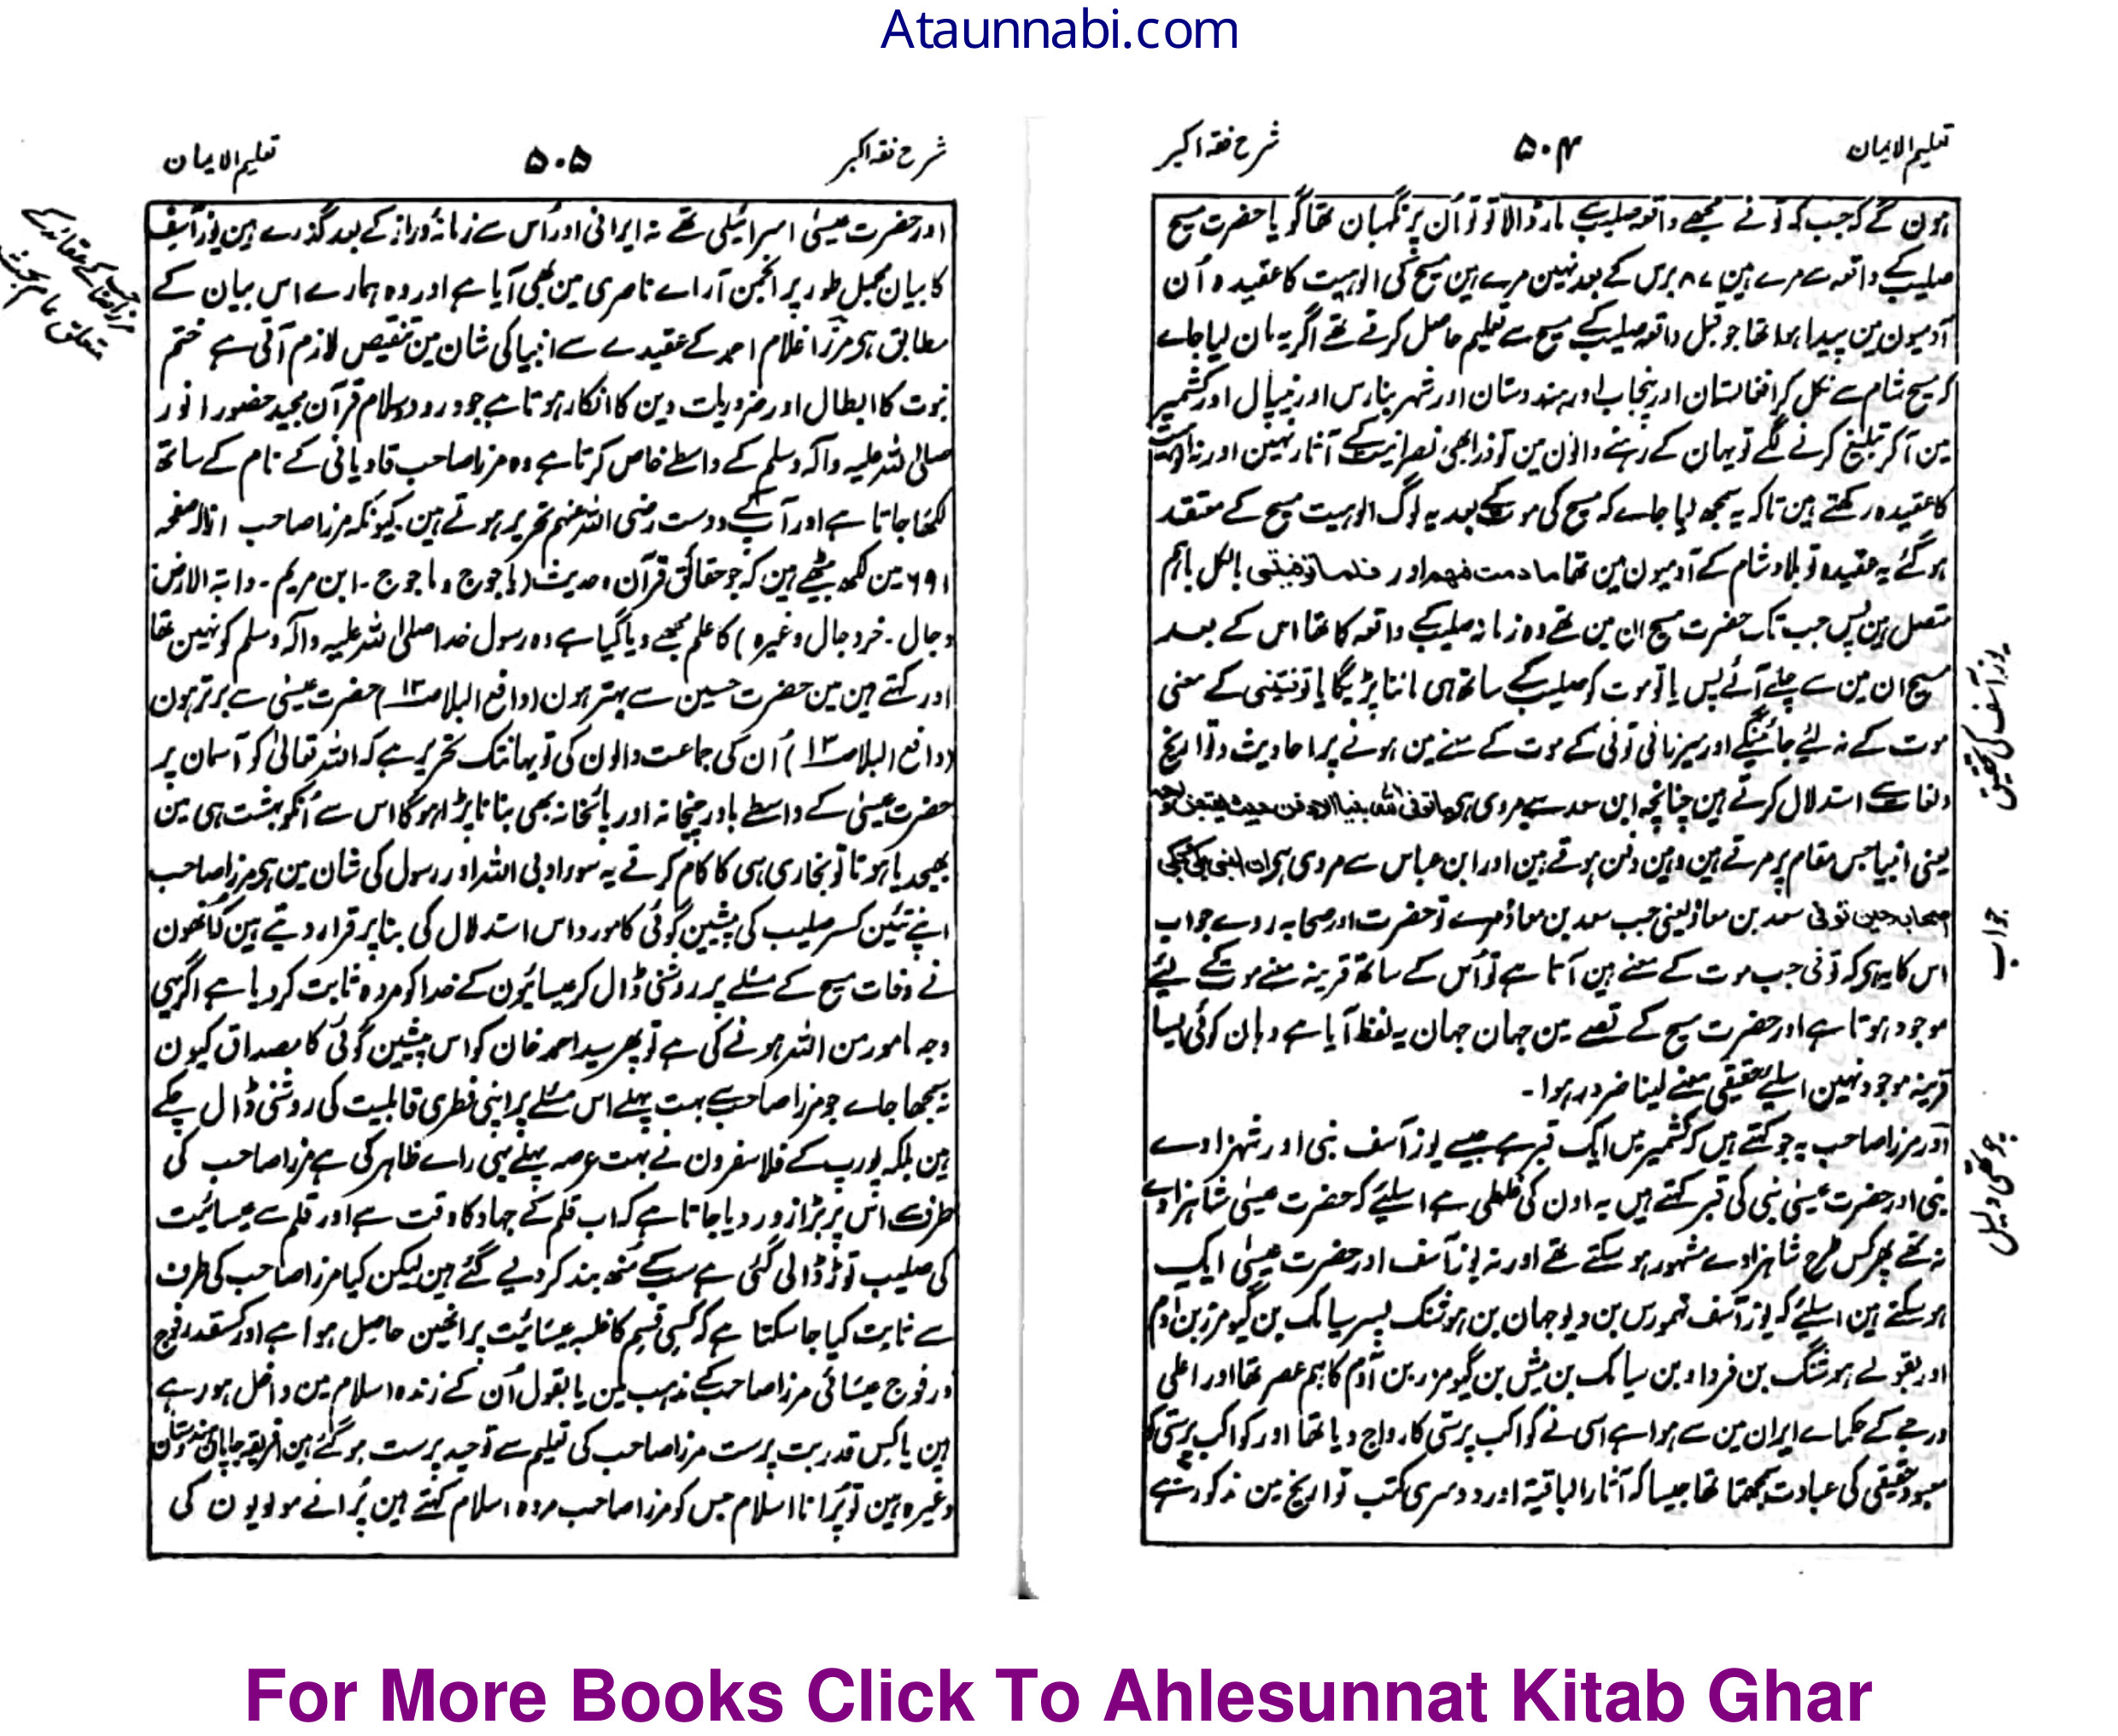 Ataunnabi.com
تعلیم الایمان
۵۰۴
شرح فقہ اکبر
ہون گے کہ جب کہ تو نے مجھے واقعہ صلیب سے مار ڈالا تو تو اُن پر نگہبان تھا گویا حضرت مسیح
صلیب کے واقعہ سے مرے ہین ۸۷ برس کے بعد نہین مرے ہین مسیح کی الوہیت کا عقیدہ اُن
آدمیون مین پیدا ہوا تھا جو قبل واقعہ صلیب کے مسیح سے تعلیم حاصل کرتے تھے اگر یہ مان لیا جاے
کہ مسیح شام سے نکل کر افغانستان اور پنجاب اور ہندوستان اور شہر بنارس اور نیپال اور کشمیر
مین آکر تبلیغ کرنے لگے تو یہان کے رہنے والون مین تو ذرا بھی نصرانیت کے آثار نہین اور نہ الوہیت
کا عقیدہ رکھتے ہین تاکہ یہ سمجھ لیا جاے کہ مسیح کی موت کے بعد یہ لوگ الوہیت مسیح کے معتقد
ہو گئے یہ عقیدہ تو بلاد شام کے آدمیون مین تھا مادمت فیھم اور فلما توفیتنی بالکل باہم
متصل ہین پس جب تک حضرت مسیح ان مین تھے وہ زمانہ صلیب کے واقعہ کا تھا اس کے بعد
مسیح ان مین سے چلے آئے پس یا تو موت کو صلیب کے ساتھ ہی ماننا پڑیگا یا توفیتنی کے معنی
موت کے نہ لیے جائینگے اور میرزائی توفی کے موت کے معنے مین ہونے پر احادیث و تواریخ
و لغات سے استدلال کرتے ہین چنانچہ ابن سعد سے مروی ہی ما توفی اللہ نبیا الا دفن حیث یقبض روحہ
یعنی انبیا جس مقام پر مرتے ہین وہین دفن ہوتے ہین اور ابن عباس سے مروی ہی ان النبی بکی وبکی
اصحابہ حین توفی سعد بن معاذ یعنی جب سعد بن معاذ مرے تو حضرت اور صحابہ روے جواب
اس کا یہ ہی کہ توفی جب موت کے معنے مین آتا ہے تو اُس کے ساتھ قرینہ معنے موت کے لیے
موجود ہوتا ہے اور حضرت مسیح کے قصے مین جہان جہان یہ لفظ آیا ہے وہان کوئی ایسا
قرینہ موجود نہین اسلیے حقیقی معنے لینا ضرور ہوا ۔
اور مرزا صاحب یہ جو کہتے ہیں کہ کشمیر میں ایک قبر ہے جسے یوز آسف نبی اور شہزادے
نبی اور حضرت عیسٰی نبی کی قبر کہتے ہیں یہ اون کی غلطی ہے اسلیئے کہ حضرت عیسٰی شاہزادے
نہ تھے پھر کس طرح شاہزادے مشہور ہو سکتے تھے اور نہ یوز آسف اور حضرت عیسٰی ایک
ہو سکتے ہین اسلیئے کہ یوز آسف تہمورس بن دیو جہان بن ہوشنگ پسر سیامک بن گیومرز بن آدم
اور بقولے ہوشنگ بن فرداد بن سیامک بن میش بن گیومرز بن آدم کا ہم عصر تھا اور اعلی
درجے کے حکماے ایران مین سے ہوا ہے اسی نے کواکب پرستی کا رواج دیا تھا اور کواکب پرستی کو
معبود حقیقی کی عبادت سمجھتا تھا جیسا کہ آثار الباقیہ اور دوسری کتب تواریخ مین مذکور ہے
یوز آسف کی تحقیق
جواب
چوتھی دلیل
شرح فقہ اکبر
۵۰۵
تعلیم الایمان
اور حضرت عیسٰی اسرائیلی تھے نہ ایرانی اور اُس سے زمانۂ دراز کے بعد گذرے ہین یوز آسف
کا بیان مجمل طور پر انجمن آراے ناصری مین بھی آیا ہے اور وہ ہمارے اس بیان کے
مطابق ہی مرزا غلام احمد کے عقیدے سے انبیا کی شان مین تنقیص لازم آتی ہے ختم
نبوت کا ابطال اور ضروریات دین کا انکار ہوتا ہے جو درود و سلام قرآن مجید حضور انور
صلی اللہ علیہ وآلہ وسلم کے واسطے خاص کرتا ہے وہ مرزا صاحب قادیانی کے نام کے ساتھ
لکھا جاتا ہے اور آپ کے دوست رضی اللہ عنہم تحریر ہوتے ہین ۔ کیونکہ مرزا صاحب ازالہ صفحہ
۶۹۱ مین لکھ بیٹھے ہین کہ جو حقائق قرآن و حدیث (یاجوج و ماجوج ۔ ابن مریم ۔ دابۃ الارض
دجال ۔ خر دجال وغیرہ) کا علم مجھے دیا گیا ہے وہ رسول خدا صلی اللہ علیہ وآلہ وسلم کو نہین تھا
اور کہتے ہین مین حضرت حسین سے بہتر ہون (دافع البلا ص۱۳) حضرت عیسٰی سے برتر ہون
(دافع البلا ص۱۳) اُن کی جماعت والون کی تو یہانتک تحریر ہے کہ اللہ تعالیٰ کو آسمان پر
حضرت عیسٰی کے واسطے باورچیخانہ اور پائخانہ بھی بنانا پڑا ہوگا اس سے اُنکو بہشت ہی مین
بھیجدیا ہوتا تو نجاری ہی کا کام کرتے یہ سوء ادبی اللہ اور رسول کی شان مین ہی مرزا صاحب
اپنے تئین کسر صلیب کی پیشین گوئی کا مورد اس استدلال کی بنا پر قرار دیتے ہین کہ اُنھون
نے وفات مسیح کے مسئلے پر روشنی ڈال کر عیسائیون کے خدا کو مردہ ثابت کر دیا ہے اگر یہی
وجہ مامور من اللہ ہونے کی ہے تو پھر سید احمد خان کو اس پیشین گوئی کا مصداق کیون
نہ سمجھا جاے جو مرزا صاحب سے بہت پہلے اس مسئلے پر اپنی فطری قابلیت کی روشنی ڈال چکے
ہین بلکہ یورپ کے فلاسفرون نے بہت عرصہ پہلے یہی راے ظاہر کی ہے مرزا صاحب کی
طرف سے اس پر بڑا زور دیا جاتا ہے کہ اب قلم کے جہاد کا وقت ہے اور قلم سے عیسائیت
کی صلیب توڑ ڈالی گئی ہے سب کے منھ بند کر دیے گئے ہین لیکن کیا مرزا صاحب کی طرف
سے ثابت کیا جا سکتا ہے کہ کسی قسم کا غلبہ عیسائیت پر انھین حاصل ہوا ہے اور کسقدر فوج
در فوج عیسائی مرزا صاحب کے مذہب مین یا بقول اُن کے زندہ اسلام مین داخل ہو رہے
ہین یا کس قدر بت پرست مرزا صاحب کی تعلیم سے توحید پرست ہو گئے ہین افریقہ جاپان ہندوستان
وغیرہ مین تو پُرانا اسلام جس کو مرزا صاحب مردہ اسلام کہتے ہین پُرانے مولویون کی
مرزا صاحب کے عقائد کے
متعلق عام بحث
For More Books Click To Ahlesunnat Kitab Ghar